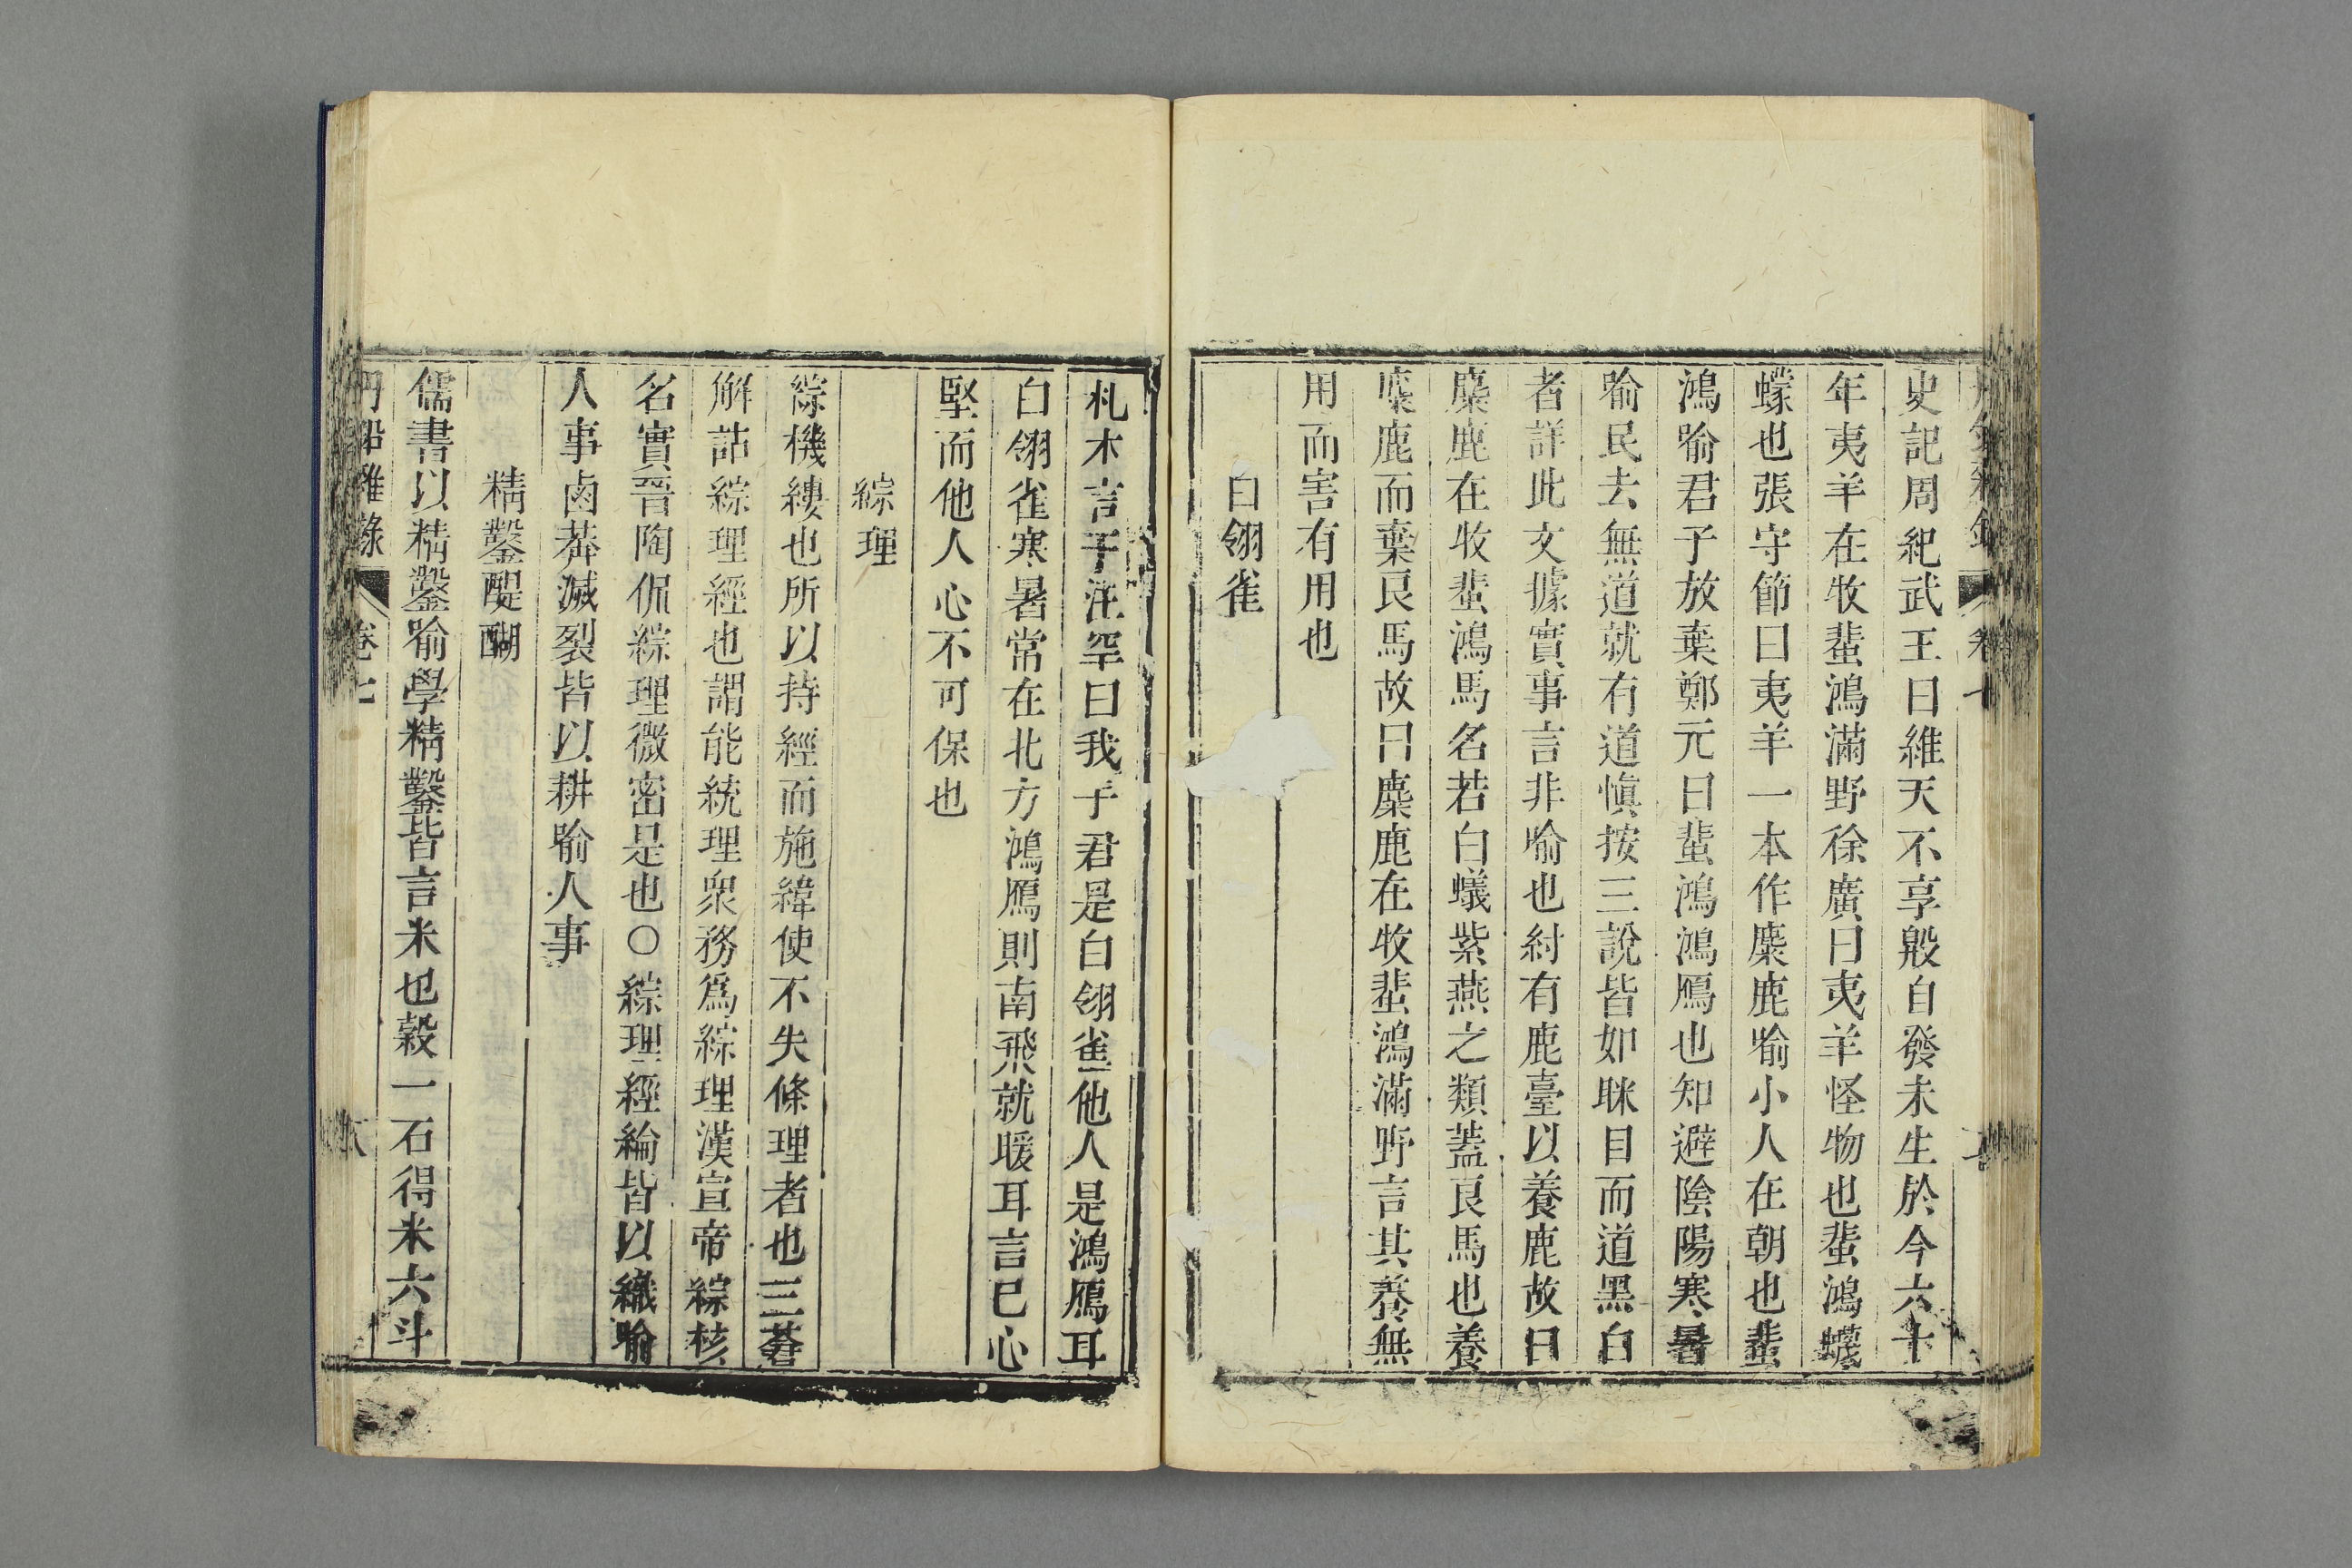 史記周紀武王曰維天不享殷自發未生於今六十
年夷羊在牧蜚鴻滿野徐廣曰夷羊怪物也蜚鴻蠛
蠓也張守節曰夷羊一本作麋鹿喻小人在朝也蜚
鴻喻君子放棄鄭元曰蜚鴻鴻鴈也知避陰陽寒暑
喻民去無道就有道愼按三說皆如眯目而道黑白
者詳此文據實事言非喻也紂有鹿臺以養鹿故曰
麋鹿在牧蜚鴻馬名若白蟻紫燕之類蓋良馬也養
麋鹿而棄良馬故曰麋鹿在牧蜚鴻滿野言其養無
用而害有用也
白翎雀
札木言于汪罕曰我于君是白翎雀他人是鴻鴈耳
白翎雀寒暑常在北方鴻鴈則南飛就暖耳言已心
堅而他人心不可保也
綜理
綜機縷也所以持經而施緯使不失條理者也三蒼
解詁綜理經也謂能統理衆務爲綜理漢宣帝綜核
名實晉陶侃綜理微密是也〇綜理經綸皆以織喻
人事鹵莽滅裂皆以耕喻人事
精鑿醍醐
儒書以精鑿喻學精鑿皆言米也穀一石得米六斗
丹鉛雜錄 卷七 八